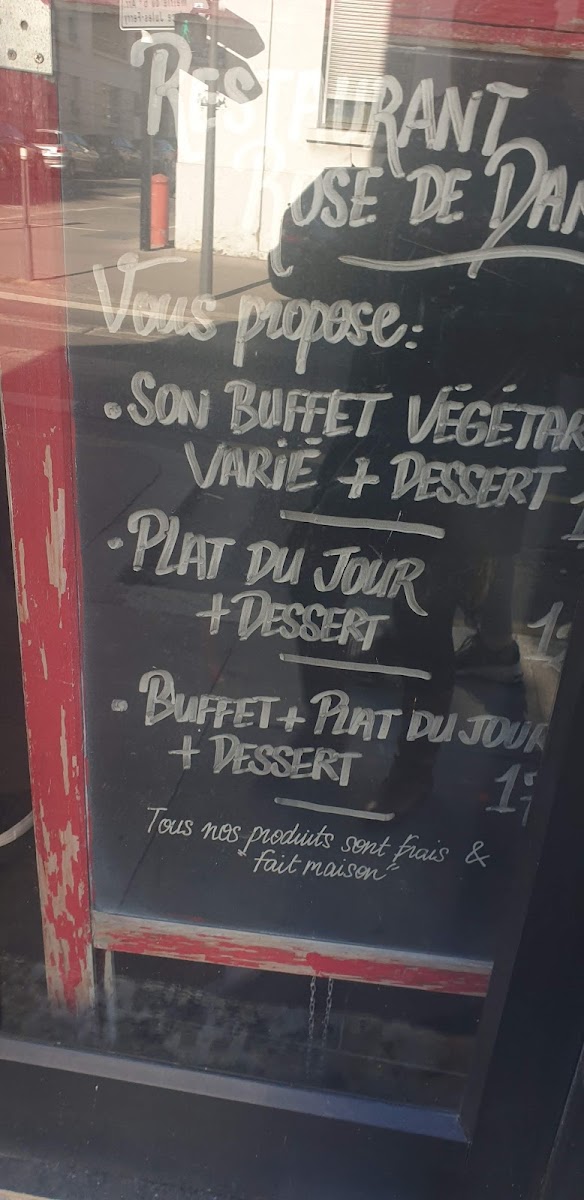 RESTAURANT
ROSE DE DAM
Vous propose:
• SON BUFFET VÉGÉTAR
VARIÉ + DESSERT
• PLAT DU JOUR
+ DESSERT
• BUFFET + PLAT DU JOUR
+ DESSERT
Tous nos produits sont frais &
"fait maison"